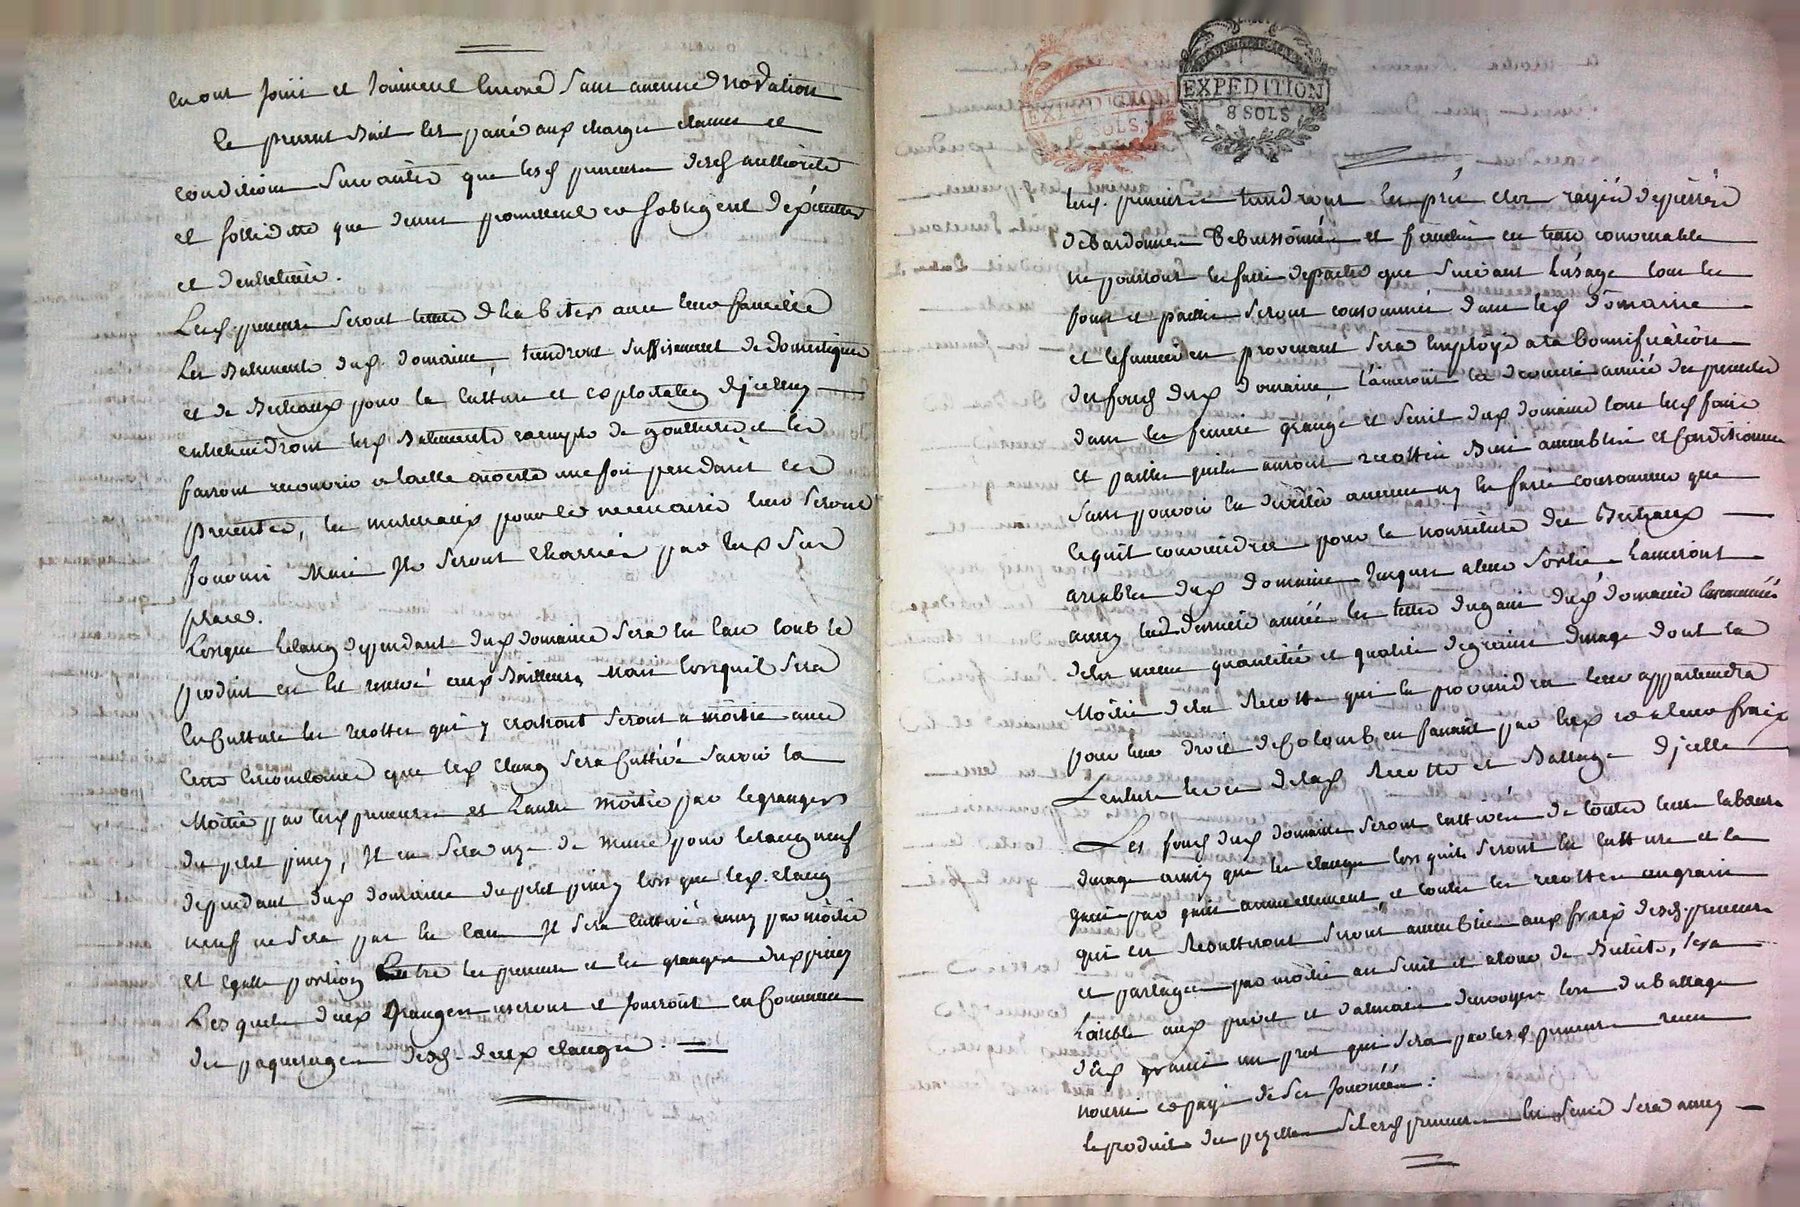 en ont joüi et jouissent encore sans aucune novation
le present Bail est passé aux charges clauses et
conditions suivantes que lesd preneurs desd authorité
et sollidité que dessus promettent et sobligent dexécuter
et dentretenir.
Lesd. preneurs seront tenus dhabiter avec leur famille
les Batiments dud. domaine, tiendront suffisamment de domestiques
et de Bestiaux pour la culture et exploitation dicelluy
entretiendront lesd Batiments exempts de gouttieres et les
fairont recouvrir a taille ouverte une fois pendant ces
presentes, les materiaux pour ce necessaires leur seront
fournis Mais Ils seront charriés par eux sur
place.
Lorsque letang dependant dud domaine sera en eau tout le
produit en est reservé aux Bailleurs, Mais lorsquil sera
en Culture les recoltes qui y croitront seront a moitié avec
cette circonstance que led etang sera Cultivé savoir la
Moitié par lesd preneurs et Lautre Moitié par le granger
du petit piney, Il en sera usé de meme pour letang neuf
dependant dud domaine du petit piney lors que led. etang
neuf ne sera pas en eau Il sera cultivé aussy par moitié
et egalle portion Entre les preneurs et les grangers dud piney
Lesquels deux Grangers useront et Jouiront en Commun
du paquerages desd. deux etangs.
EXPEDITION
8 SOLS.
EXPEDITION
8 SOLS
lesd. preneurs tiendront les prés clos rayés depierrés
debardonnés Ebuissonnés et fermés en tems convenable
ne pourront les faire depaitre que suivant lusage tous les
foins et pailles seront consommés dans led domaine
et le fumier en provenant sera Employé a la bonnification
des fonds dud domaine, Laisseront la derniere année des presentes
dans les feniere grange et sueil dud domaine tous lesd foins
et pailles quils auront recoltés Bien ameublis et Conditionnés
sans pouvoir les divertir aucunement ny en faire consommer que
ce quil conviendra pour la nourriture des Bestiaux
arables dud domaine Jusques a leur sortie Laisseront
aussy lad derniere année les terres dugain dud domaine Ensemencées
de la meme quantité et qualité de grains dusage dont la
Moitié de la Recolte qui en proviendra leur appartiendra
pour leur droit de Colomb en faisant par eux et a leurs fraix
Lenture levée de lad Recolte et Battage dicelle
Les fonds dud domaine seront cultivés de toutes leurs labours
dusage ainsy que les etangs lorsquils seront en culture et le
gain par gain annuellement, et toutes les recoltes en grain
qui en Resulteront seront ameublies aux fraix desd. preneurs
et partagées par moitié au sueil et alors de Battu, sera
Loisible aux
dud grain un pret qui sera par lesd preneurs
nourri et payé de ses Journées.
le produit des